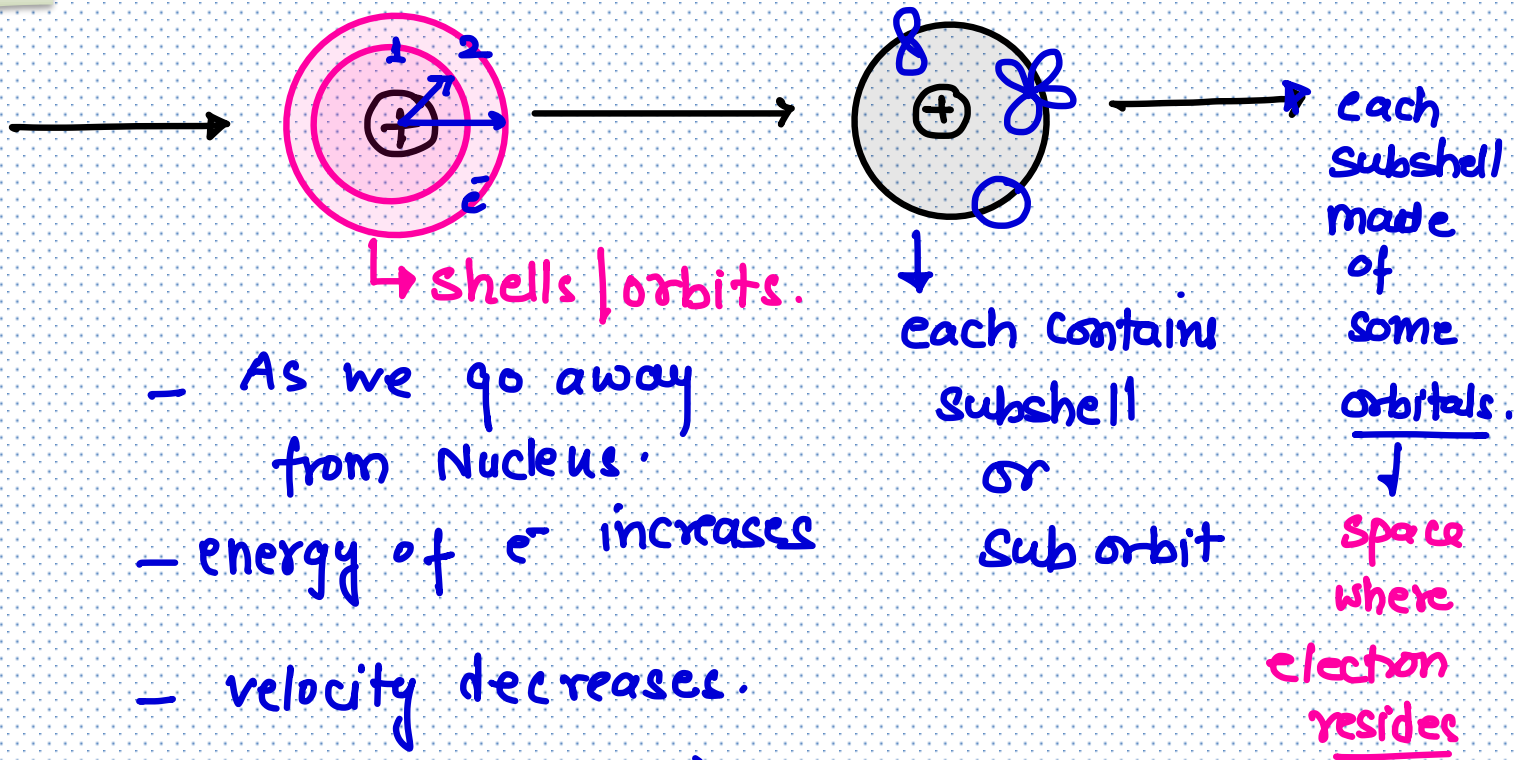 1 2
+
e-
shells | orbits.
- As we go away
from Nucleus.
- energy of e- increases
- velocity decreases.
+
each contains
subshell
or
sub orbit
each
subshell
made
of
some
orbitals.
space
where
electron
resides